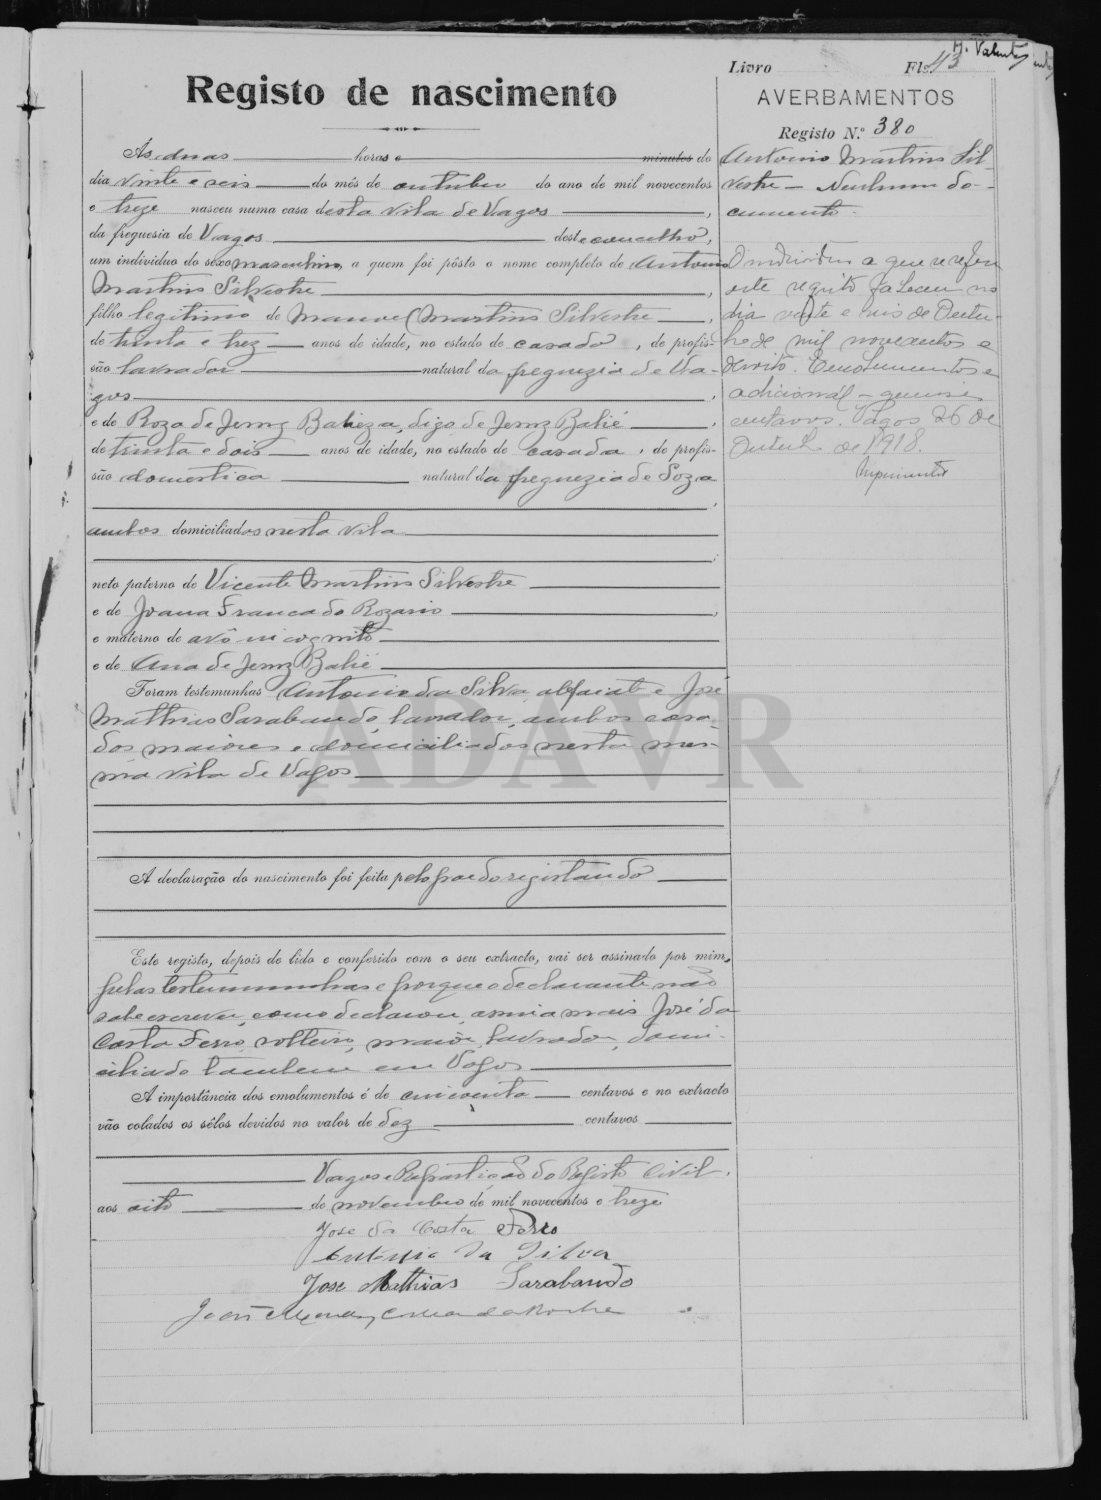 H. Valente
Livro Fls 43
Registo de nascimento
AVERBAMENTOS
Registo N.º 380
Ás duas horas e minutos do
dia vinte e seis do mês de outubro do ano de mil novecentos
e treze nasceu numa casa desta vila de Vagos,
da freguesia de Vagos deste concelho,
um individuo do sexo masculino, a quem foi pôsto o nome completo de Antonio
Martins Silvestre,
filho legitimo de Manuel Martins Silvestre,
de trinta e trez anos de idade, no estado de casado, de profis-
são lavrador natural da freguezia de Va-
gos,
e de Roza de Jesus Balieza, digo de Jesus Balié,
de trinta e dois anos de idade, no estado de casada, de profis-
são domestica natural da freguezia de Soza
,
ambos domiciliados nesta vila
;
neto paterno de Vicente Martins Silvestre
e de Joana Franca do Rozario,
e materno de avô incognito
e de Ana de Jesus Balié
Foram testemunhas Antonio da Silva, alfaiate e José
Mathias Sarabando, lavrador, ambos casa-
dos maiores e domiciliados nesta mes-
ma vila de Vagos
A declaração do nascimento foi feita pelo pae do registando
Este registo, depois de lido e conferido com o seu extracto, vai ser assinado por mim,
pelas testemunhas e porque o declarante não
sabe escrever, como declarou, assina mais José da
Costa Ferro, solteiro, maior, lavrador, domi-
ciliado tambem em Vagos
A importância dos emolumentos é de cincoenta centavos e no extracto
vão colados os sêlos devidos no valor de dez centavos
Vagos e Repartição do Registo Civil,
aos oito de novembro de mil novecentos e treze
Jose da Costa Ferro
Antonio da Silva
Jose Mathias Sarabando
João da Rocha
Antonio Martins Sil-
vestre — Nenhum do-
cumento.
O individuo a que se refere
este registo faleceu no
dia vinte e seis de Outu-
bro de mil novecentos e
dezoito. Emolumentos e
adicional — quinze
centavos. Vagos 26 de
Outub. de 1918.
ADAVR